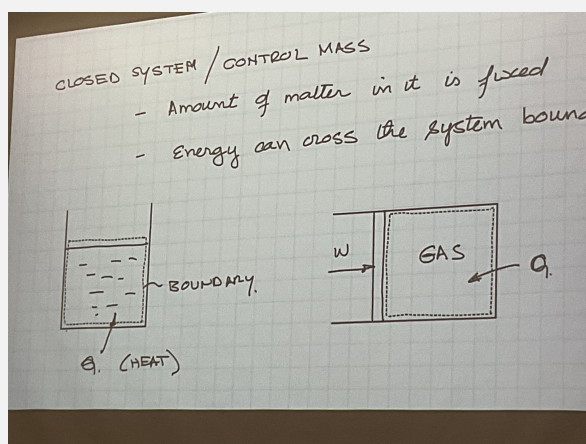 CLOSED SYSTEM / CONTROL MASS
- Amount of matter in it is fixed
- Energy can cross the system bound
W
GAS
Q.
BOUNDARY.
Q. (HEAT)